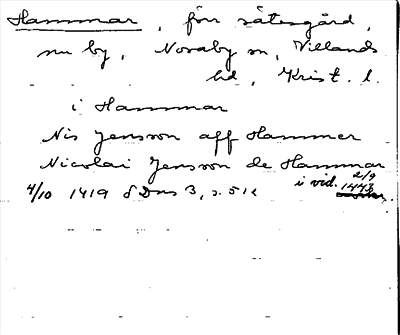 Hammar, förr sätesgård,
nu by, Nosaby sn, Villands
hd, Krist. l.
i Hammar
Nis Jensson aff Hammer
Nicolai Jensson de Hammar
4/10 1419 SDns 3, s. 512 i vid. 2/9
1443